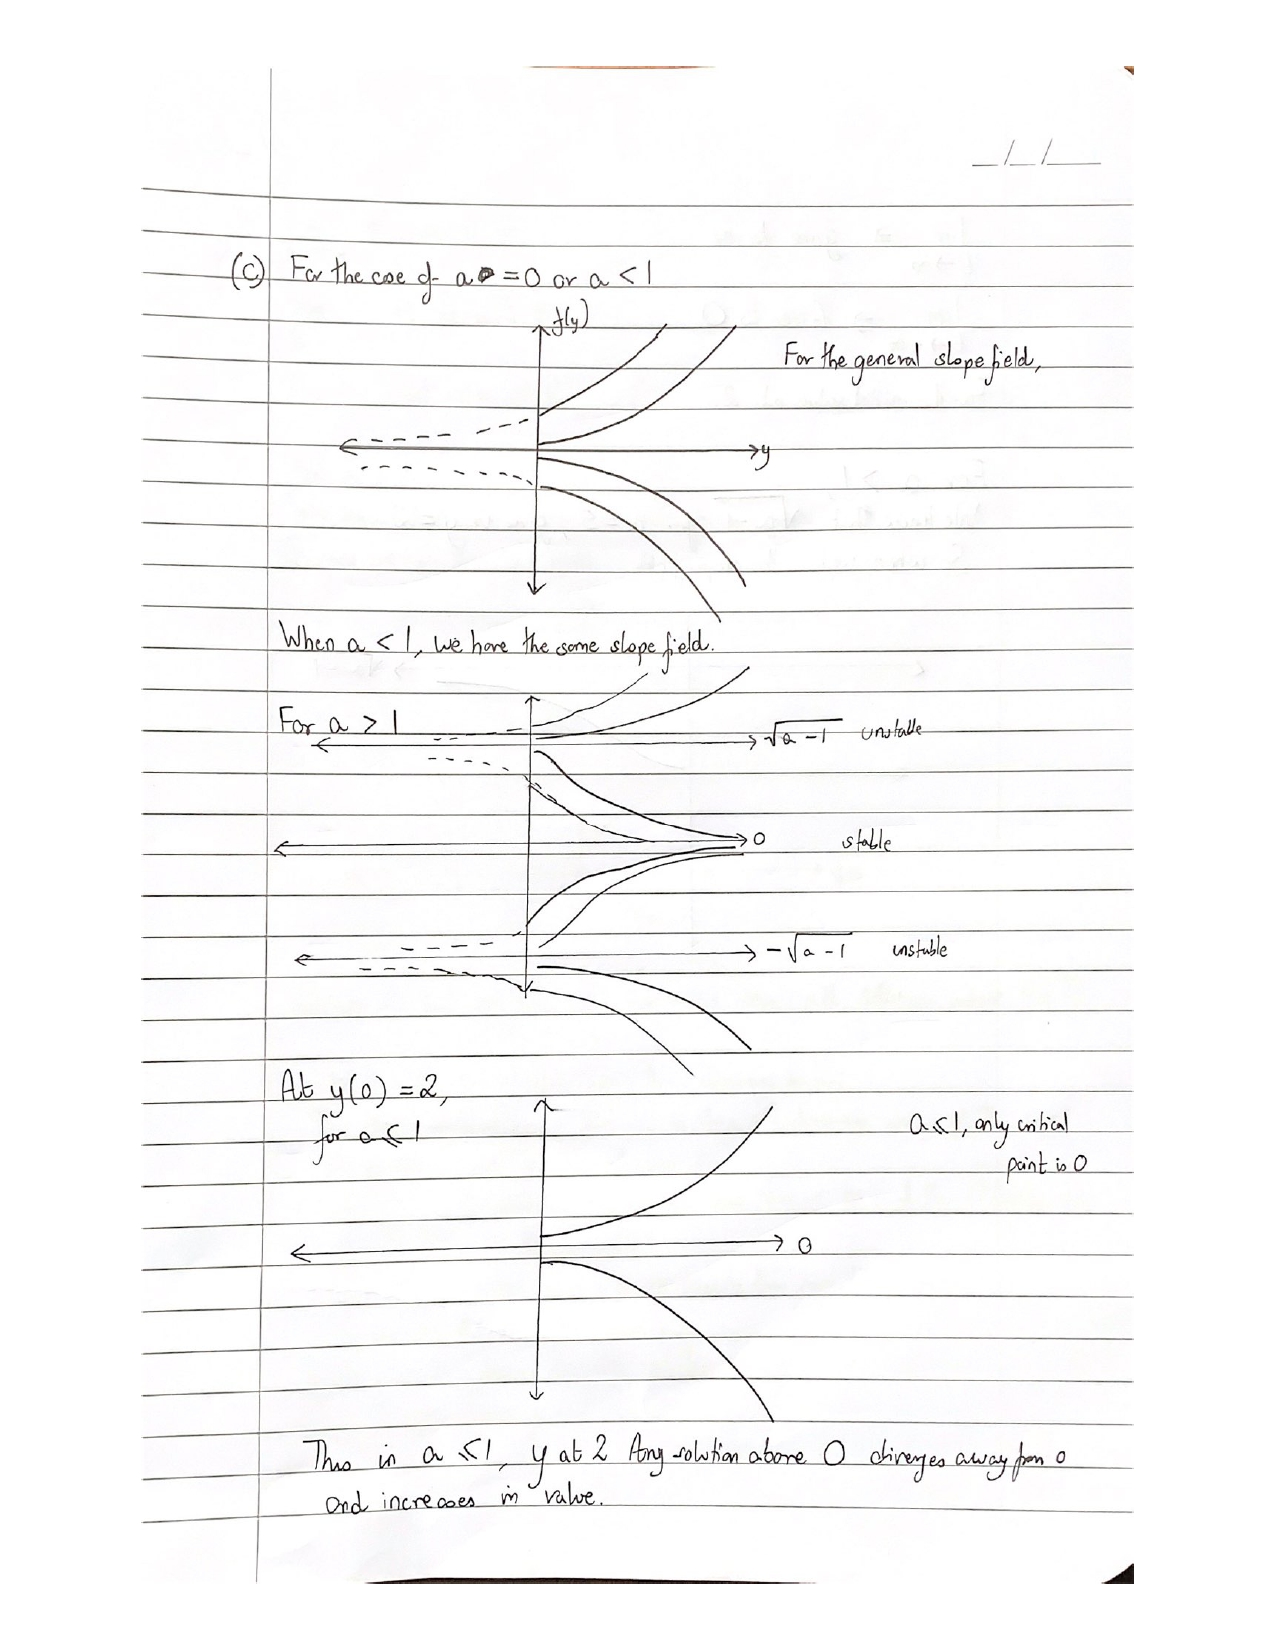 (C) For the case of a = 0 or a < 1
f(y)
For the general slope field,
y
When a < 1, we have the same slope field.
For a > 1
√a-1 unstable
0 stable
-√a-1 unstable
At y(0) = 2,
for a ≤ 1
a ≤ 1, only critical
point is 0
0
Thus in a ≤ 1, y at 2 Any solution above 0 diverges away from 0
and increases in value.